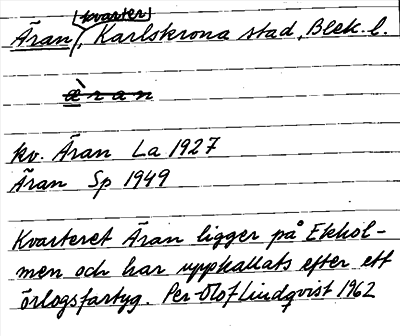 kvarter
Äran, Karlskrona stad, Blek. l.
æ̀ran
kv. Äran La 1927
Äran Sp 1949
Kvarteret Äran ligger på Ekhol-
men och har uppkallats efter ett
örlogsfartyg. Per-Olof Lindqvist 1962